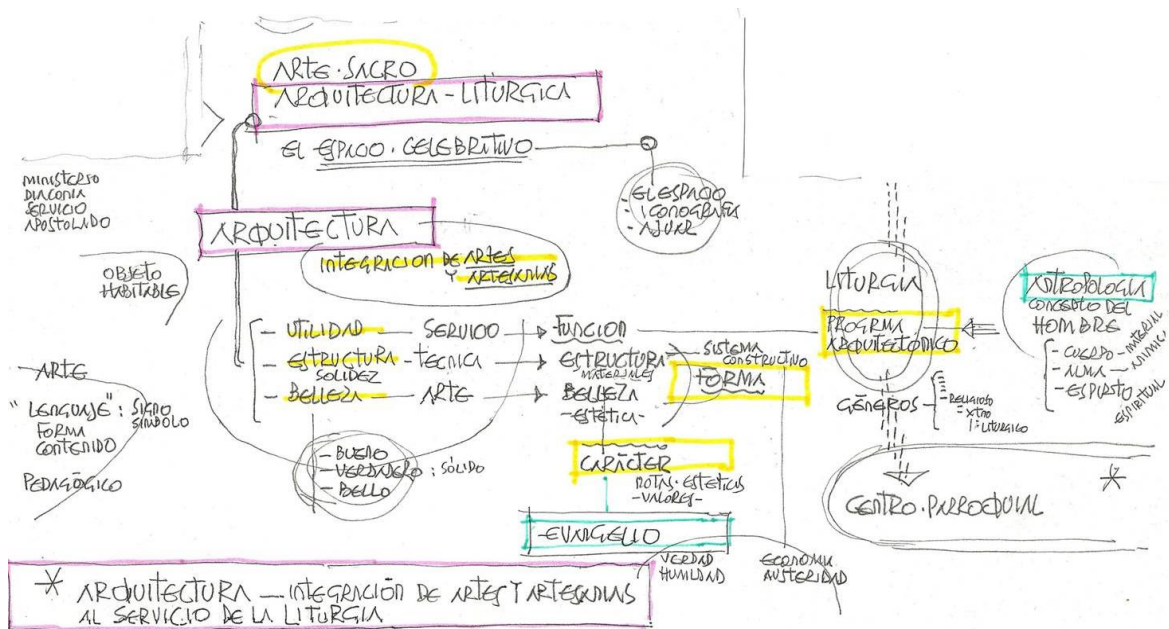 ARTE·SACRO
ARQUITECTURA-LITURGICA
EL ESPACIO·CELEBRATIVO
- EL ESPACIO
- ICONOGRAFIA
- AJUAR
MINISTERIO
DIACONIA
SERVICIO
APOSTOLADO
ARQUITECTURA
INTEGRACION DE ARTES
Y ARTESANIAS
OBJETO
HABITABLE
- UTILIDAD — SERVICIO → FUNCION
- ESTRUCTURA - TECNICA → ESTRUCTURA - SISTEMA CONSTRUCTIVO
SOLIDEZ
MATERIALES
- BELLEZA - ARTE → BELLEZA
-ESTÉTICA-
FORMA
- ARTE
"LENGUAJE": SIGNO
SIMBOLO
FORMA
CONTENIDO
PEDAGÓGICO
- BUENO
- VERDADERO : SÓLIDO
- BELLO
CARÁCTER
NOTAS·ESTETICAS
-VALORES-
-EVANGELIO
VERDAD
HUMILDAD
ECONOMIA
AUSTERIDAD
LITURGIA
PROGRAMA
ARQUITECTÓNICO
GÉNEROS - RELIGIOSO
XTNO
LITURGICO
CENTRO·PARROQUIAL
*
ANTROPOLOGIA
CONCEPTO DEL
HOMBRE
- CUERPO - MATERIAL
- ALMA - ANIMICO
- ESPIRITU
ESPIRITUAL
* ARQUITECTURA — INTEGRACIÓN DE ARTES Y ARTESANIAS
AL SERVICIO DE LA LITURGIA